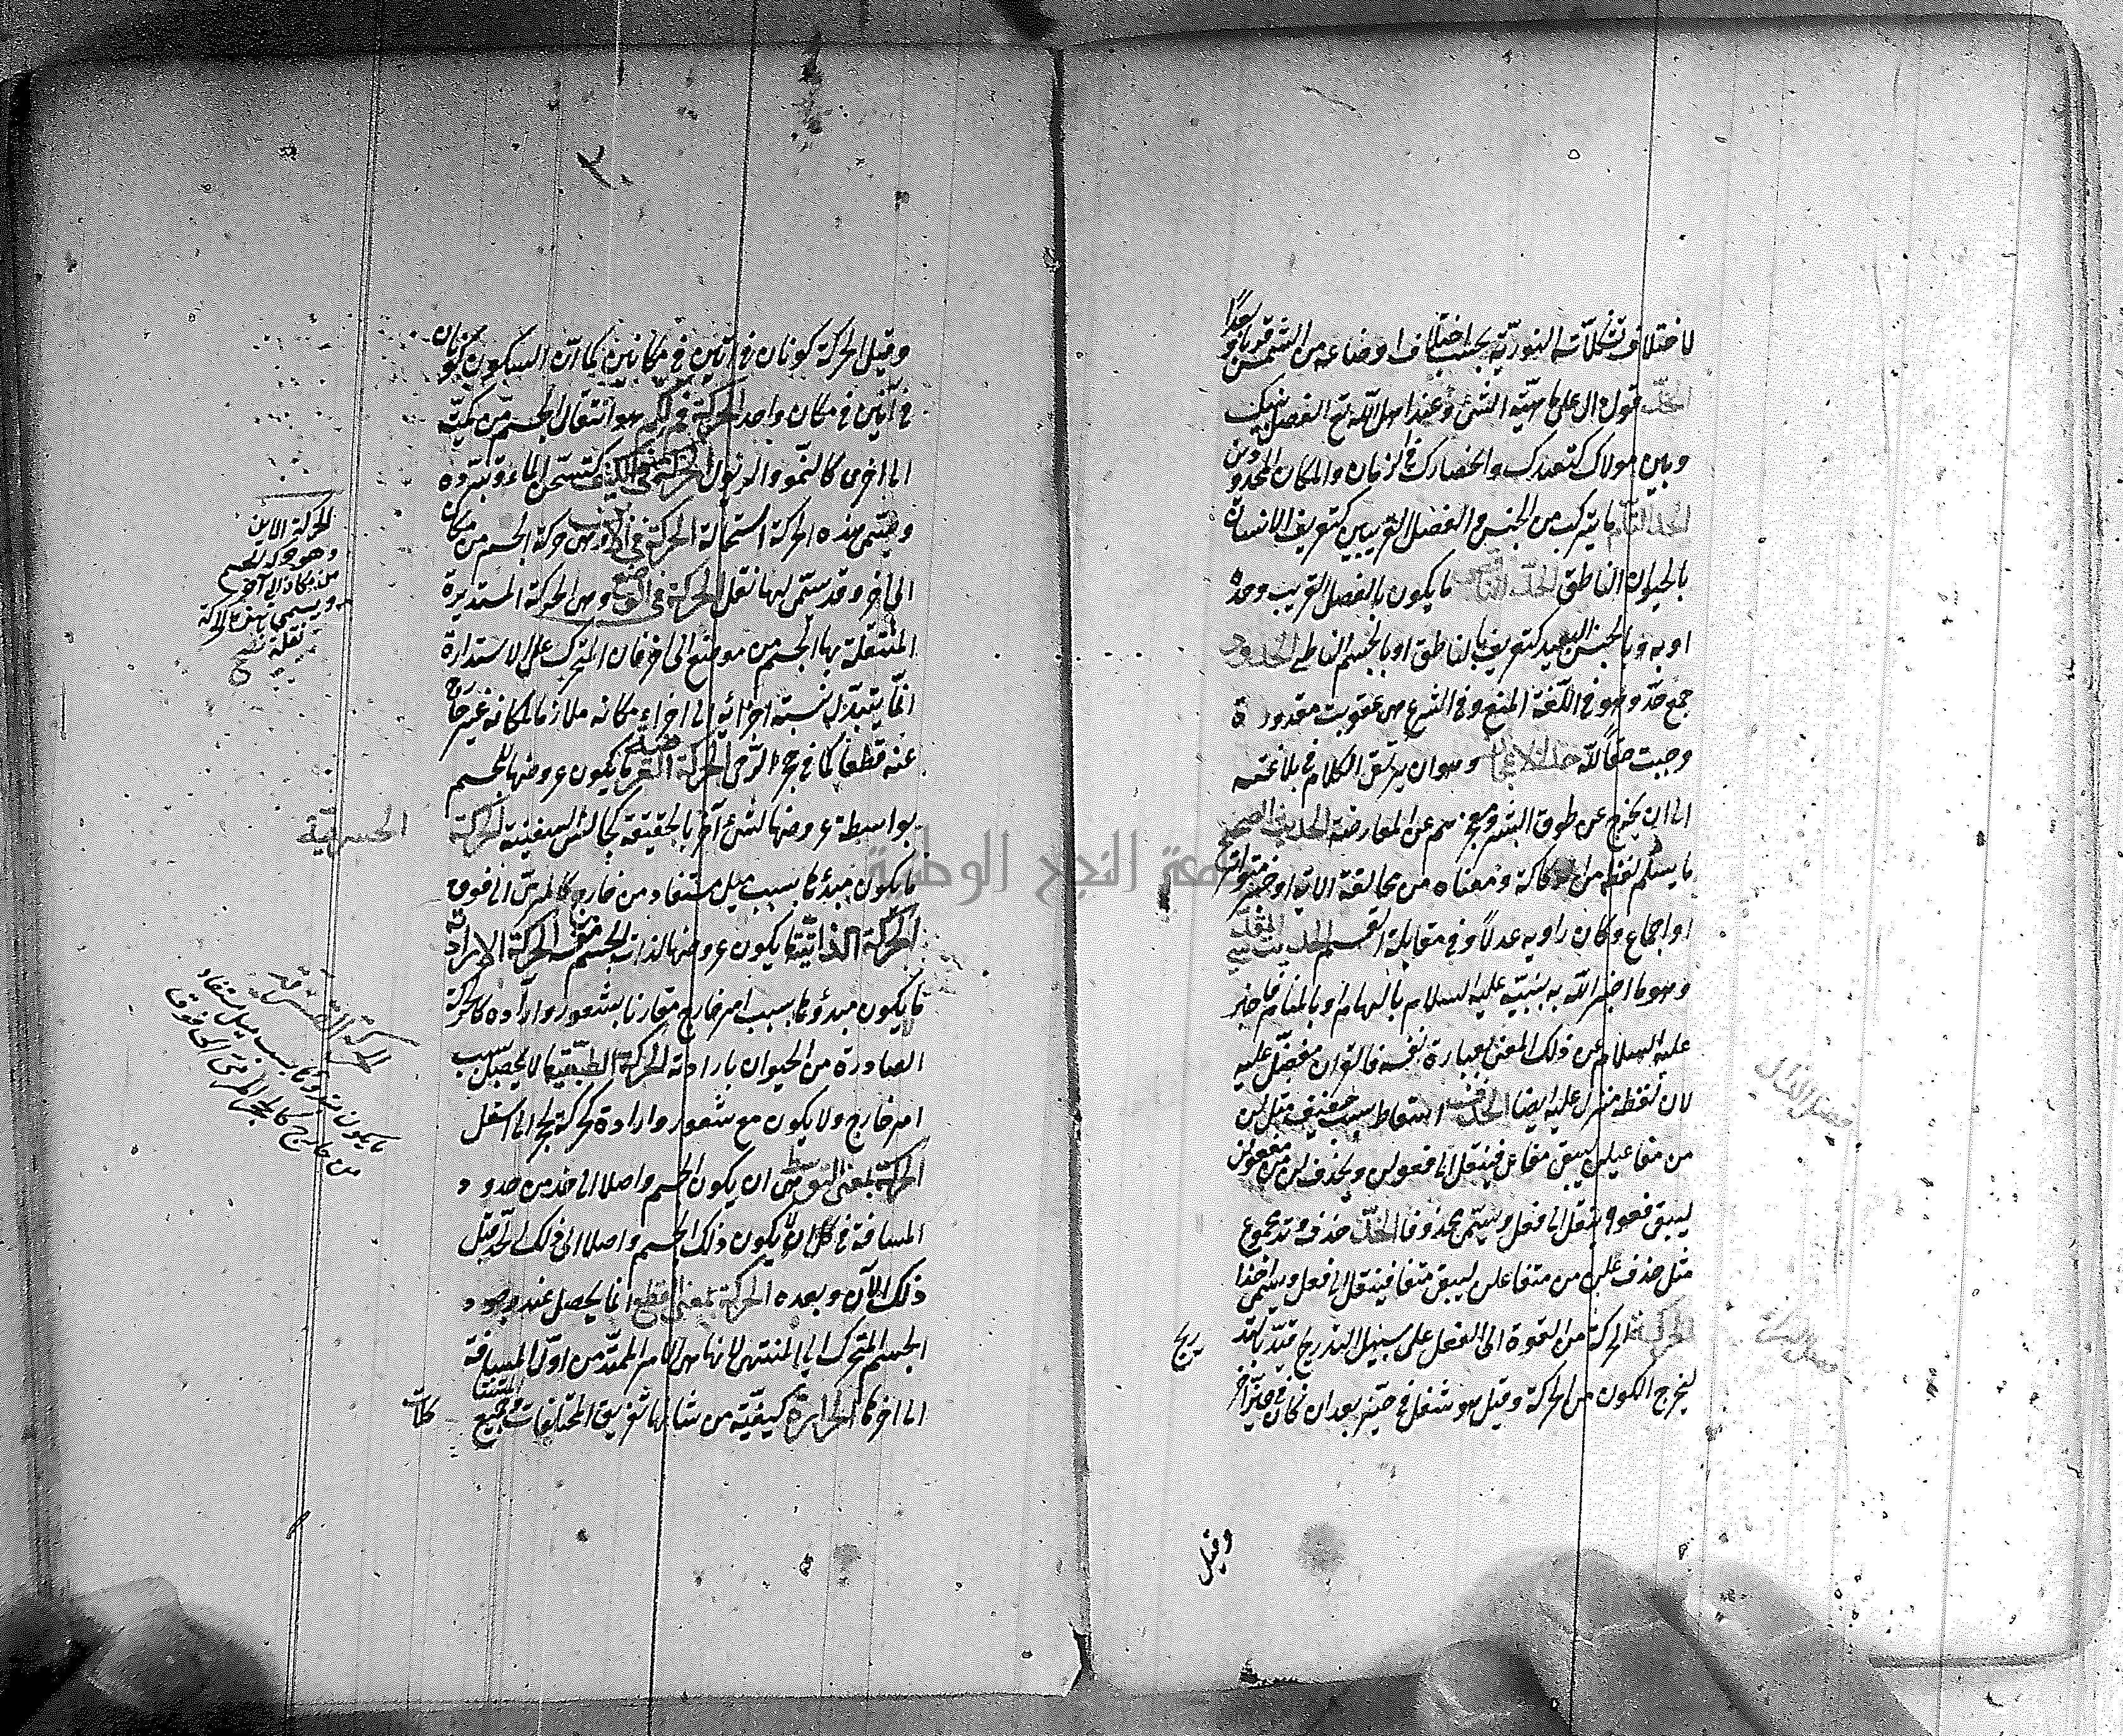 لاختلاف تشكلاته النورية بحسب اختلاف اوضاعه من الشمس قربا وبعدا
الحد قول دال على ماهية الشئ وعند اهل الله تع الفصل بينك
وبين مولاك كتعبدك وانحصارك في الزمان والمكان المحدودين
الحد التام ما يتركب من الجنس والفصل القريبين كتعريف الانسان
بالحيوان الناطق الحد الناقص ما يكون بالفصل القريب وحده
او به وبالجنس البعيد كتعريفه بالناطق او بالجسم الناطق الحدود
جمع حد وهو في اللغة المنع وفي الشرع هى عقوبت مقدورة
وجبت حقا لله حد الاعجاز وهو ان يرتقى الكلام في بلاغته
الى ان يخرج عن طوق البشر ويعجزهم عن المعارضة الحديث الصحيح
ما يسلم لفظه من الركاكة ومعناه من مخالفة الاية او خبر متواتر
او اجماع وكان راويه عدلا وفي مقابلة السقيم الحديث القدسي
وهو ما اخبر الله به نبيه عليه السلام بالهام او بالمنام فاخبر
عليه السلام عن ذلك المعنى بعبارة نفسه فالقران مفضل عليه
لان لفظه منزل عليه ايضا الحذف اسقاط سبب خفيف مثل لن
من مفاعيلن ليبقى مفاعي فينقل الى فعولن ويحذف لن من فعولن
ليبقى فعو فينقل الى فعل ويسمى محذوفا الحذ حذف وتد مجموع
مثل حذف علن من متفاعلن ليبقى متفا فينقل الى فعلن ويسمى احذا
الحركة الحركة من القوة الى الفعل على سبيل التدريج قيد بالتد
ريج
ليخرج الكون من الحركة وقيل هو شغل في حيز بعد ان كان في حيز آخر
وقيل
فصل الذال
فصل الراء
وقيل الحركة كونان في آنين في مكانين كما ان السكون كونان
في آنين في مكان واحد الحركة في الكم هو انتقال الجسم من كمية
الى اخرى كالنمو والذبول الحركة في الكيف كتسخن الماء وتبرده
وتسمى هذه الحركة استحالة الحركة في الاين هى حركة الجسم من مكان
الى اخر وقد سمى لها نقل الحركة في الوضع وهى الحركة المستديرة
المنتقلة بها الجسم من موضع الى اخر فان المتحرك على الاستدارة
انما يتبدل نسبة اجزائه الى اجزاء مكانه ملازما لمكانه غير خارج
عنه قطعا كما في حجر الرحى الحركة العرضية ما يكون عروضها للجسم
بواسطة عروضها لشئ آخر بالحقيقة كجالس السفينة الحركة
القسرية
ما يكون مبدؤها بسبب ميل مستفاد من خارج كالمرمى الى فوق
الحركة الذاتية ما يكون عروضها لذات الجسم نفسه الحركة الارادية
ما يكون مبدؤها بسبب امر خارج مقارنا بشعور وارادة كالحركة
الصادرة من الحيوان بارادته الحركة الطبيعية ما لا يحصل بسبب
امر خارج ولا يكون مع شعور وارادة كحركة الحجر الى اسفل
الحركة بمعنى التوسط هى ان يكون الجسم واصلا الى حد من حدود
المسافة في كل ان لا يكون ذلك الجسم واصلا الى ذلك الحد قبل
ذلك الآن وبعده الحركة بمعنى القطع انما يحصل عند وجود
الجسم المتحرك الى المنتهى لانها هى الامر الممتد من اول المسافة
الى اخرها الحرارة كيفية من شانها تفريق المختلفات وجمع المتشا
كلات
الحركة الاين
وهو حركة الجسم
من مكان الى آخر
ويسمى بهذه الحركة
نقلة
الحركة القسرية
ما يكون مبدؤها بسبب ميل مستفاد
من خارج كالحجر المرمى الى فوق
جامعة النجاح الوطنية